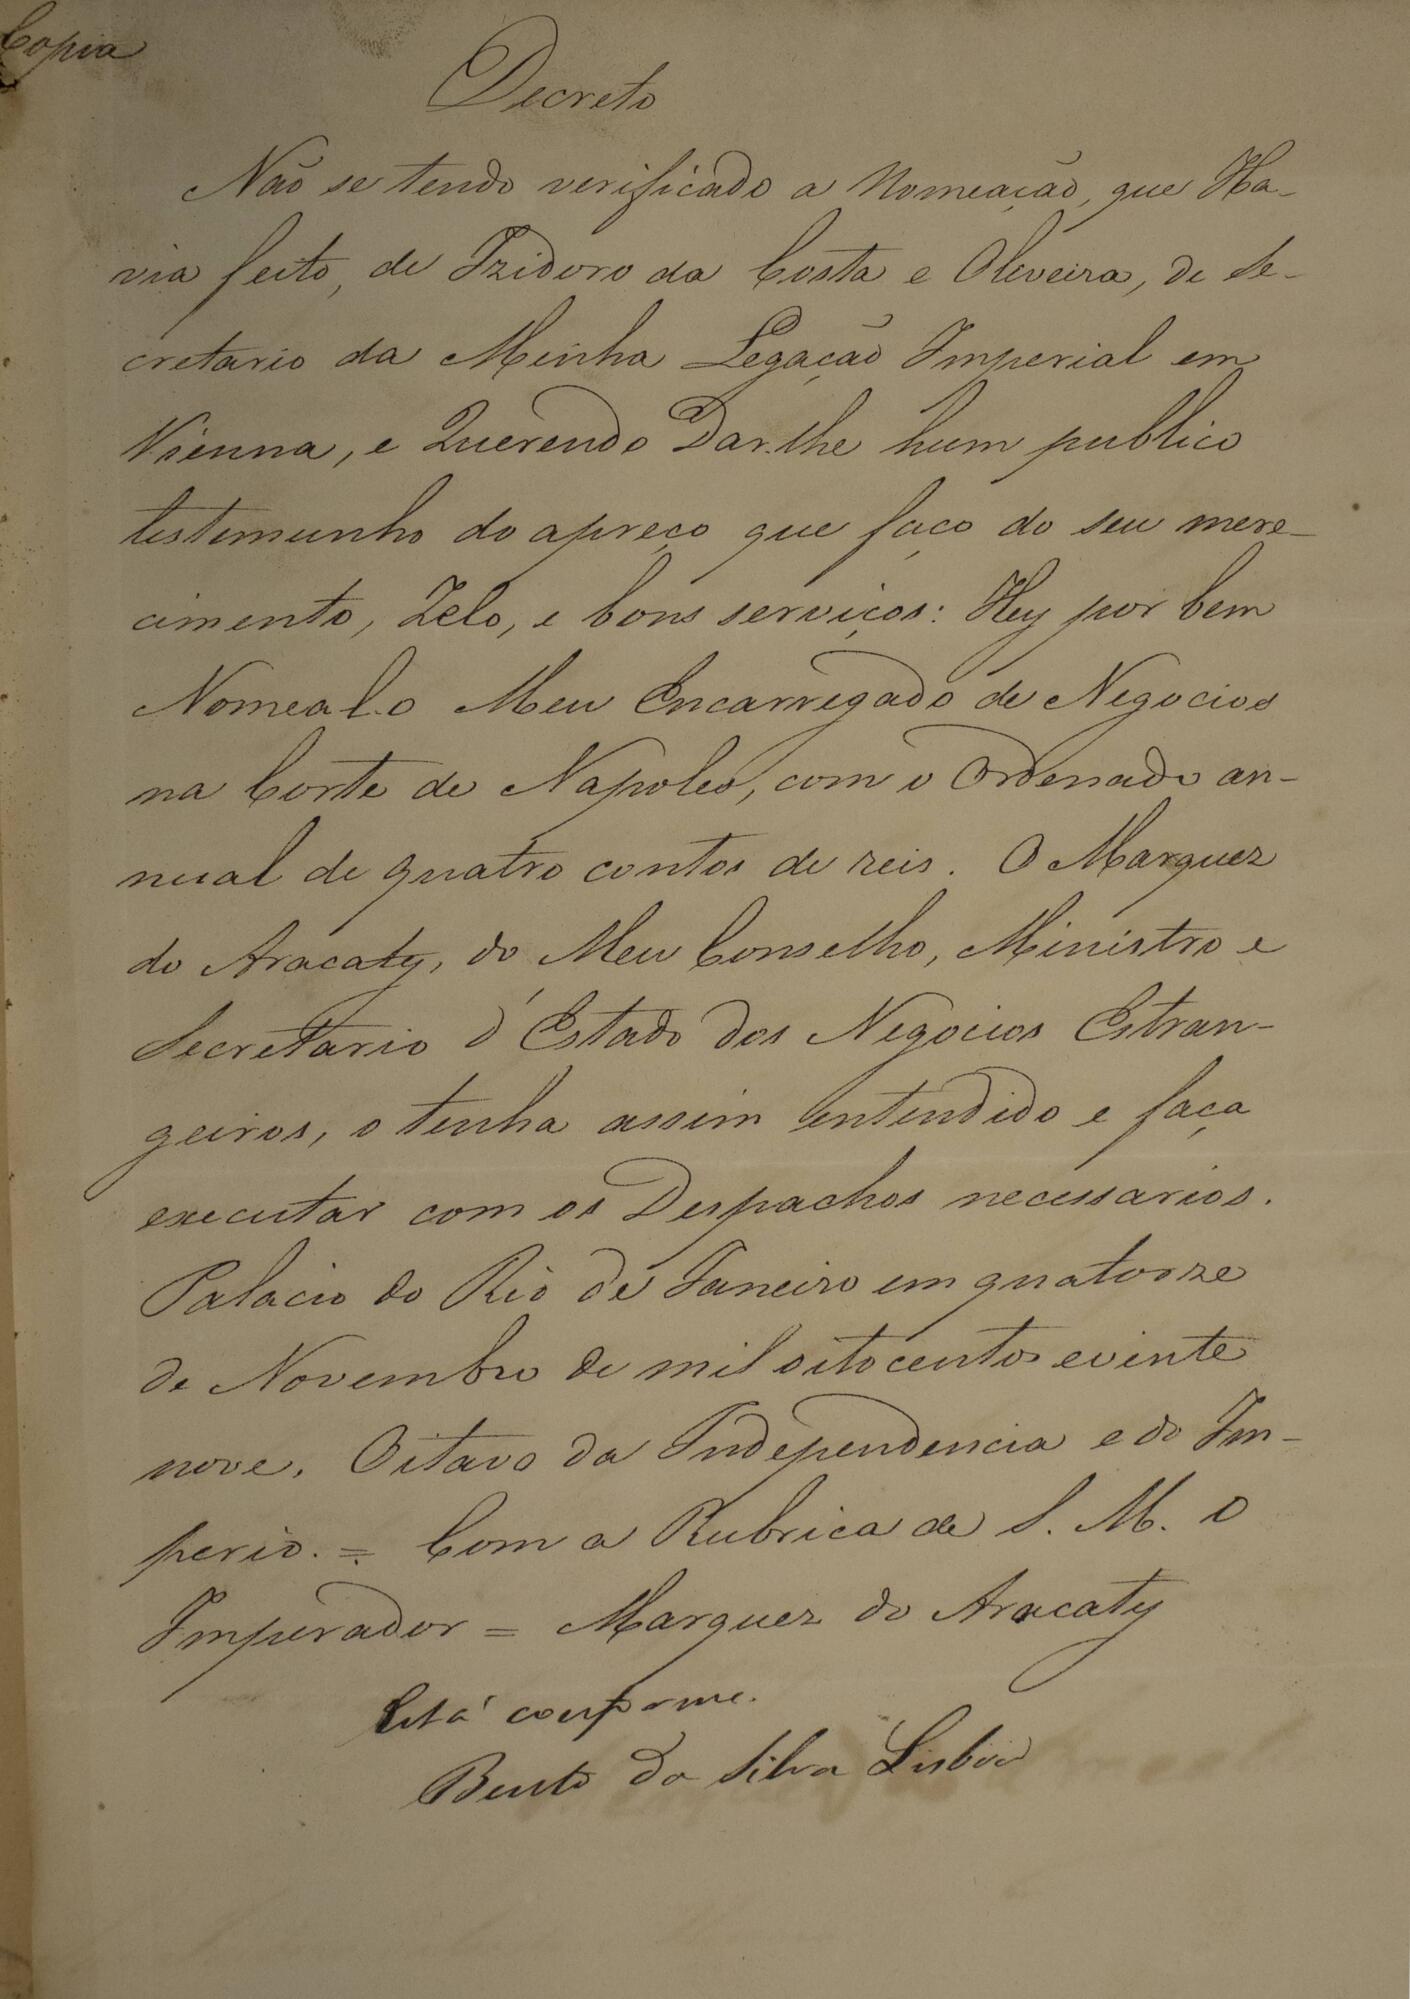 Copia
Decreto
Não se tendo verificado a Nomeação, que Ha-
via feito, de Izidoro da Costa e Oliveira, de Se-
cretario da Minha Legação Imperial em
Vienna, e Querendo Dar-lhe hum publico
testemunho do apreço que faço do seu mere-
cimento, Zelo, e bons serviços: Hey por bem
Nomeal-o Meu Encarregado de Negocios
na Corte de Napoles, com o Ordenado an-
nual de quatro contos de reis. O Marquez
do Aracaty, do Meu Conselho, Ministro e
Secretario d'Estado dos Negocios Estran-
geiros, o tenha assim entendido e faça
executar com os Despachos necessarios.
Palacio do Rio de Janeiro em quatorze
de Novembro de mil oitocentos e vinte
nove. Oitavo da Independencia e do Im-
perio. = Com a Rubrica de S. M. O
Imperador = Marquez do Aracaty
Está conforme.
Bento da Silva Lisboa